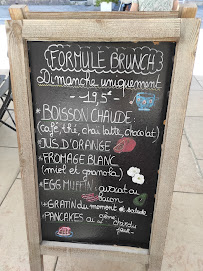 FORMULE BRUNCH
Dimanche uniquement
- 19,5€ -
* BOISSON CHAUDE :
(café, thé, chaï latte, chocolat)
* JUS D'ORANGE
* FROMAGE BLANC
(miel et granola)
* EGG MUFFIN :
bacon
* GRATIN du moment & salade
* PANCAKES au